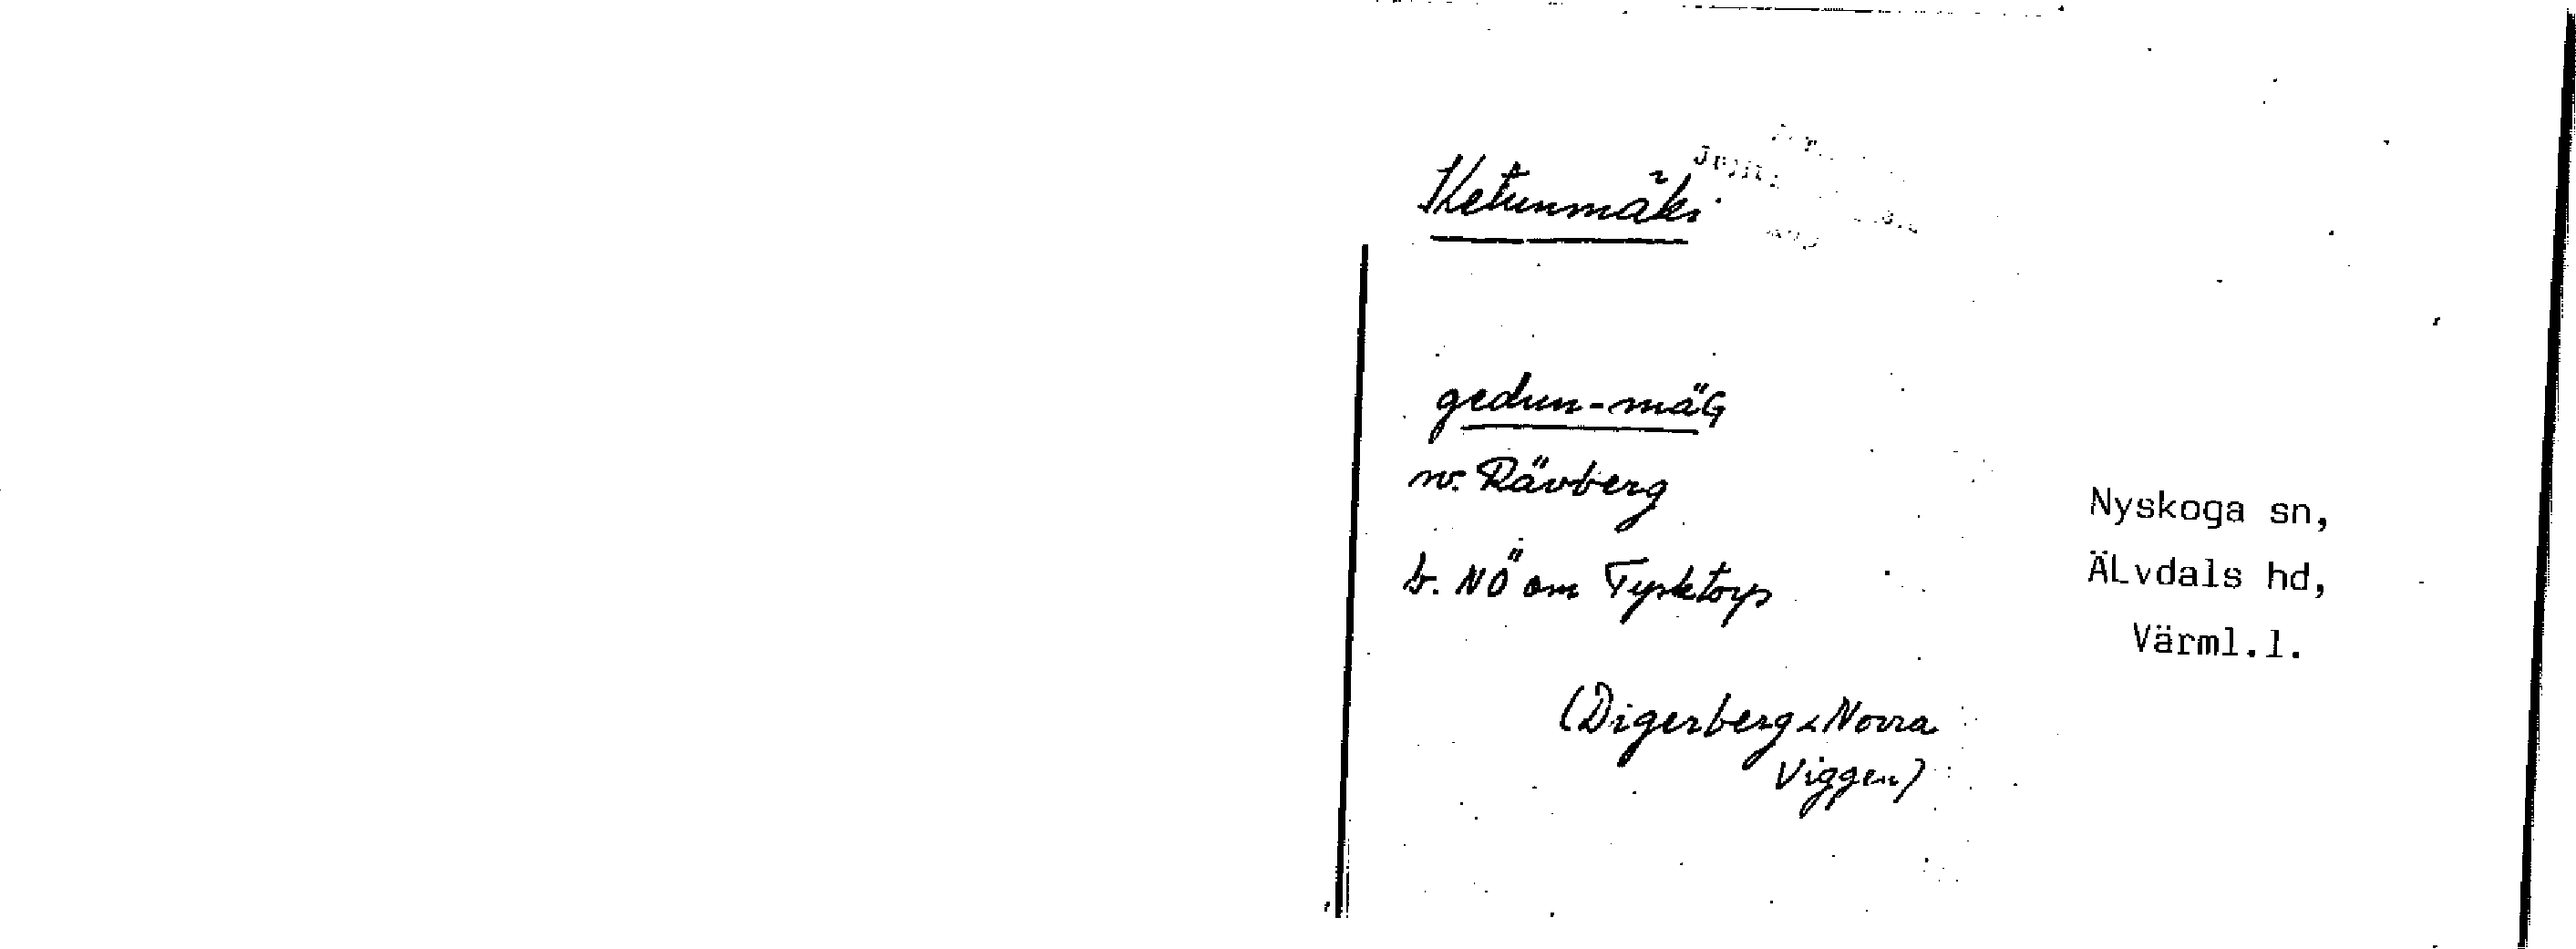 Ketunmäki
gedun-mäG
sv. Rävberg
b. NÖ om Tysktorp
(Digerberg < Norra
Viggen)
Nyskoga sn,
ÄLvdals hd,
Värml.l.